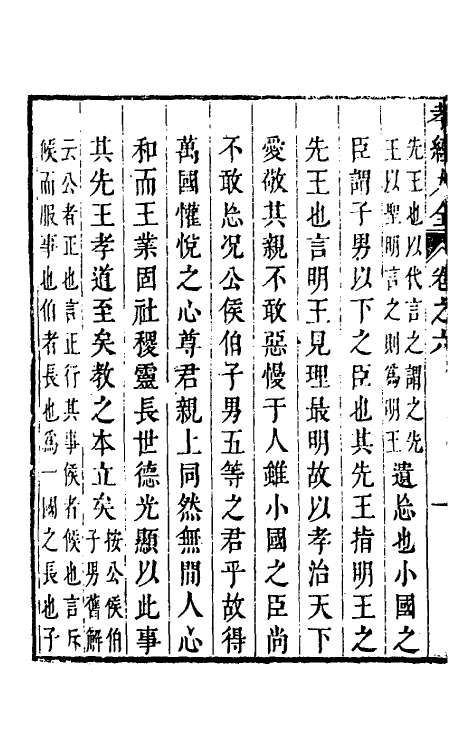 孝經 全 卷之六 一
先王也以代言之謂之先
王以聖明言之則爲明王
遺忘也小國之
臣謂子男以下之臣也其先王指明王之
先王也言明王見理最明故以孝治天下
愛敬其親不敢惡慢于人雖小國之臣尚
不敢忘况公侯伯子男五等之君乎故得
萬國懽悅之心尊君親上同然無間人心
和而王業固社稷靈長世德光顯以此事
其先王孝道至矣教之本立矣
按公侯伯
子男舊解
云公者正也言正行其事侯者候也言斥
候而服事也伯者長也爲一國之長也子